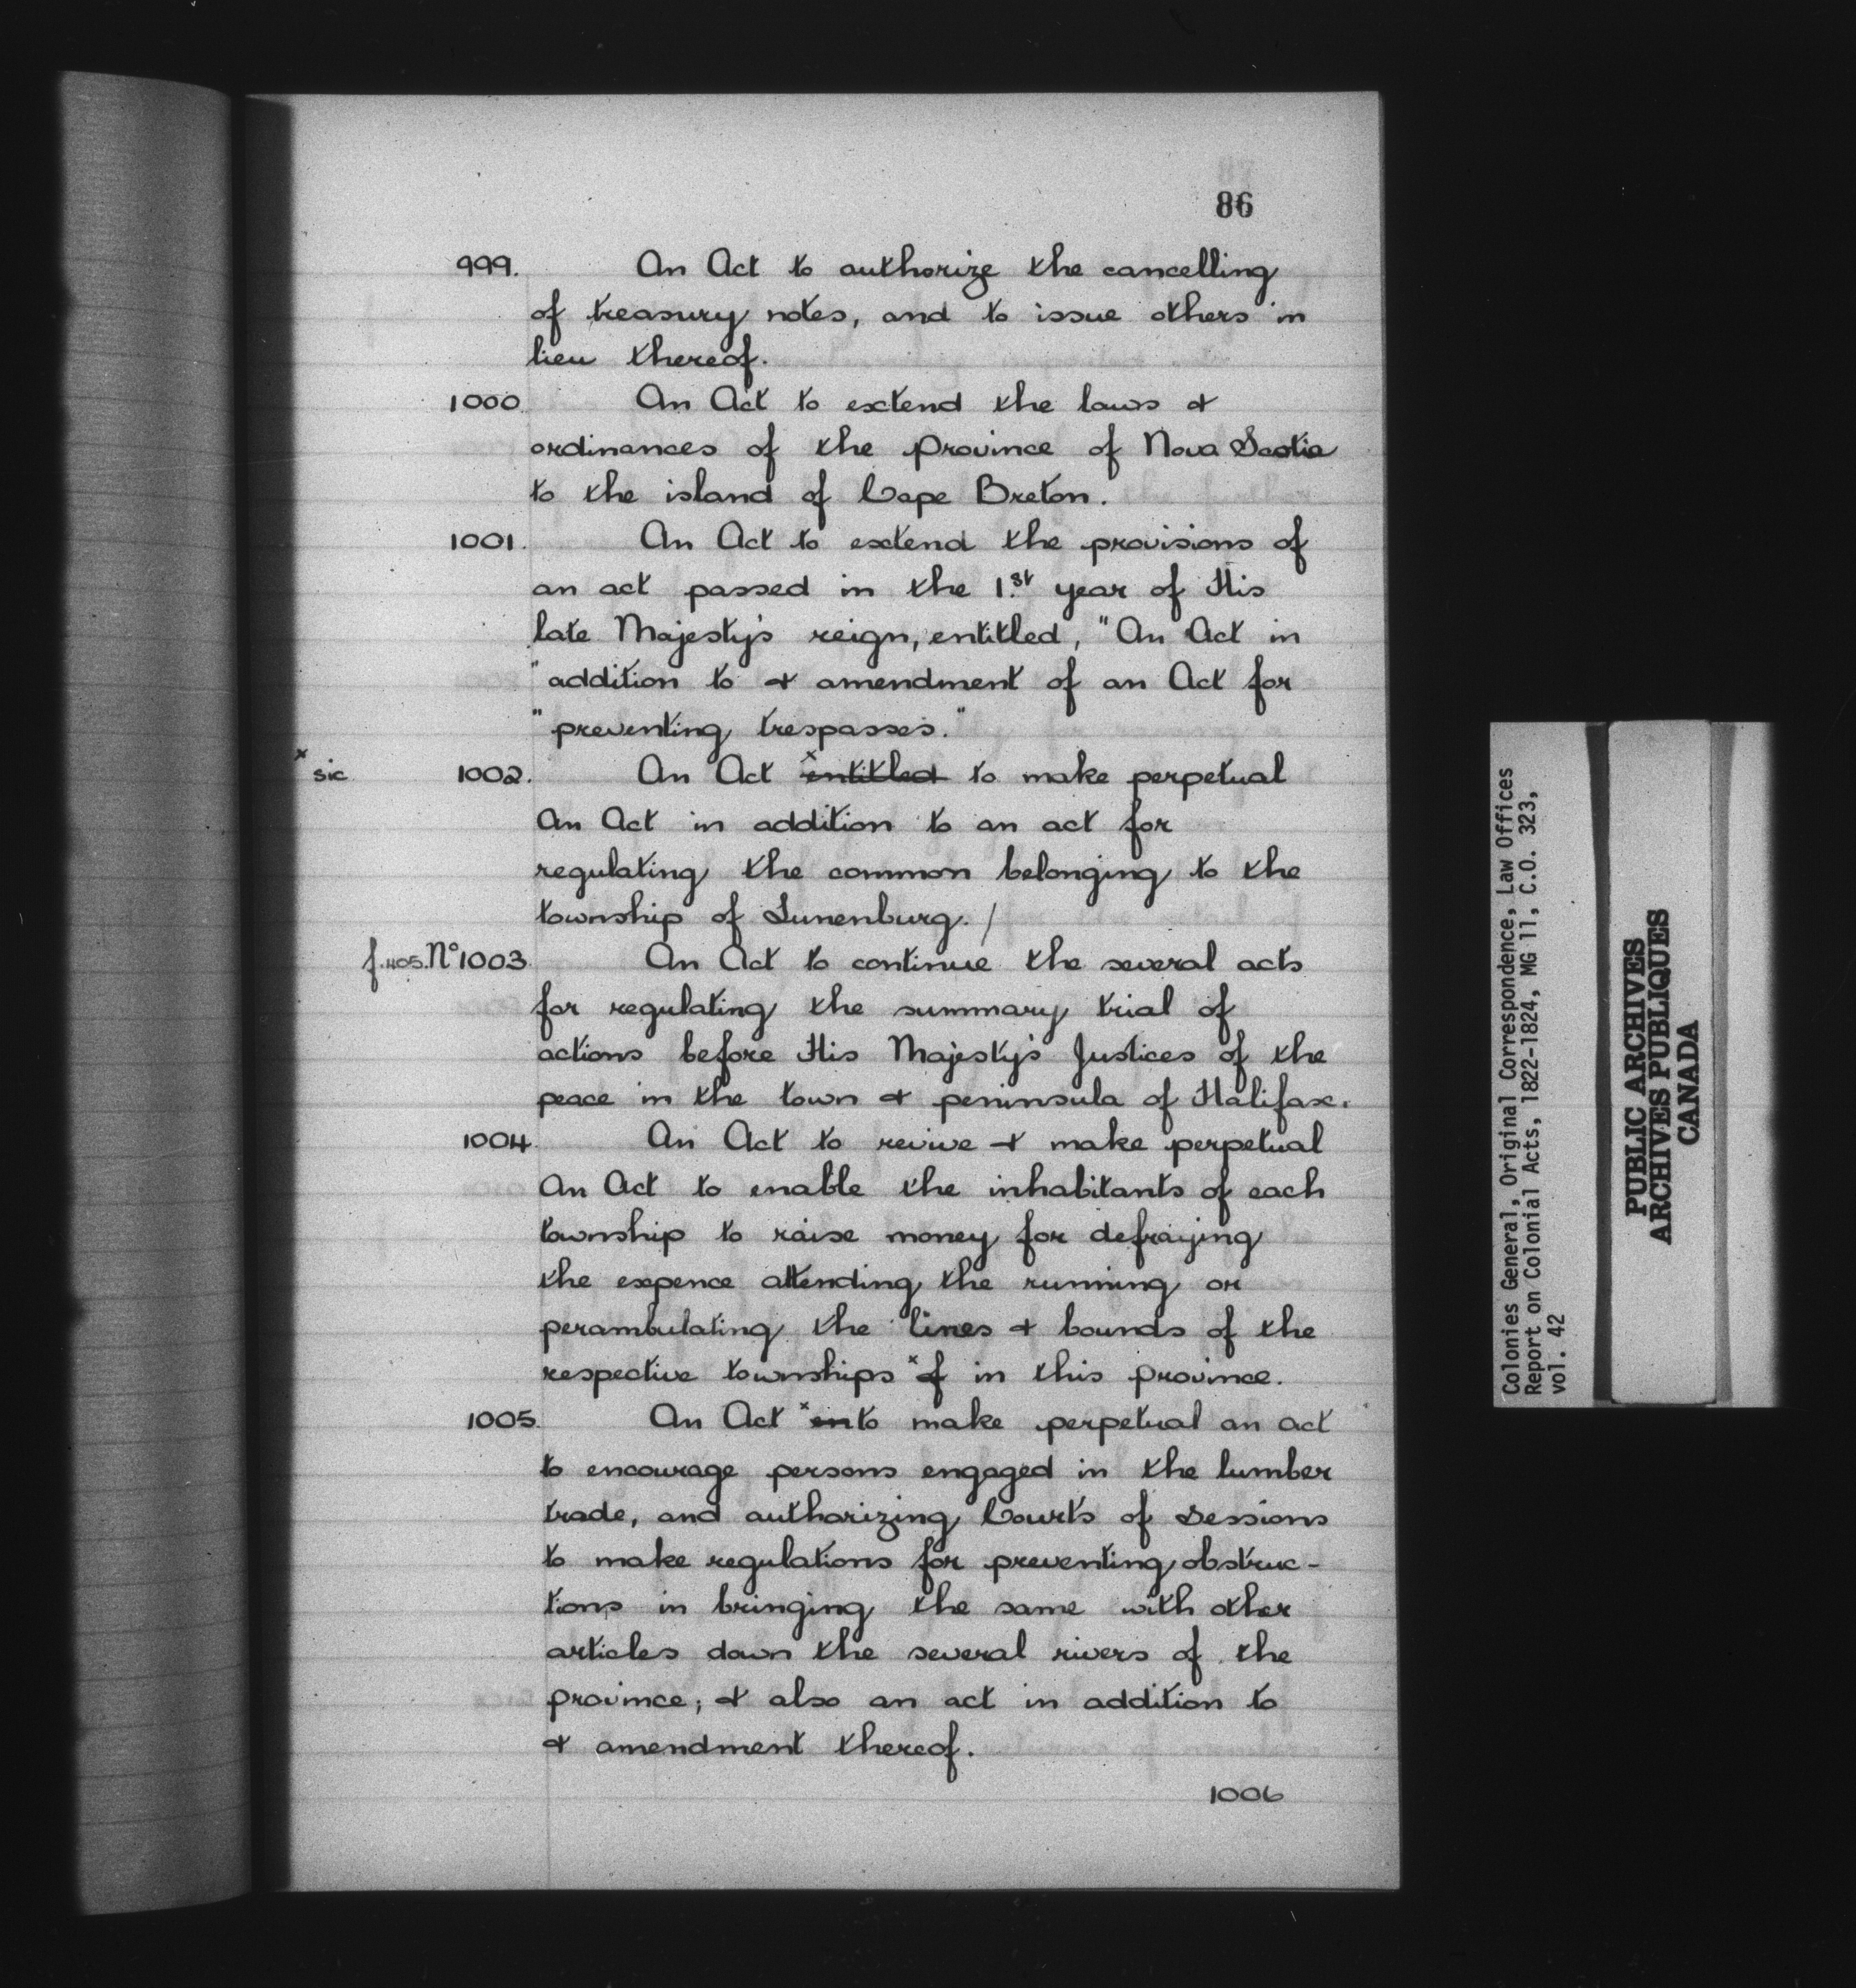 86
999. An Act to authorize the cancelling
of treasury notes, and to issue others in
lieu thereof.
1000 An Act to extend the laws &
ordinances of the province of Nova Scotia
to the island of Cape Breton.
1001. An Act to extend the provisions of
an act passed in the 1.st year of His
late Majesty's reign, entitled, "An Act in
"addition to & amendment of an Act for
"preventing trespasses."
x sic 1002. An Act x entitled to make perpetual
An Act in addition to an act for
regulating the common belonging to the
township of Lunenburg. /
f.405. No 1003 An Act to continue the several acts
for regulating the summary trial of
actions before His Majesty's Justices of the
peace in the town & peninsula of Halifax.
1004. An Act to revive & make perpetual
An Act to enable the inhabitants of each
township to raise money for defraying
the expence attending the running or
perambulating the lines & bounds of the
respective townships x of in this province.
1005. An Act x en to make perpetual an act
to encourage persons engaged in the lumber
trade, and authorizing Courts of Sessions
to make regulations for preventing obstruc-
tions in bringing the same with other
articles down the several rivers of the
province; & also an act in addition to
& amendment thereof.
1006
Colonies General, Original Correspondence, Law Offices
Report on Colonial Acts, 1822-1824, MG 11, C.O. 323,
vol. 42
PUBLIC ARCHIVES
ARCHIVES PUBLIQUES
CANADA